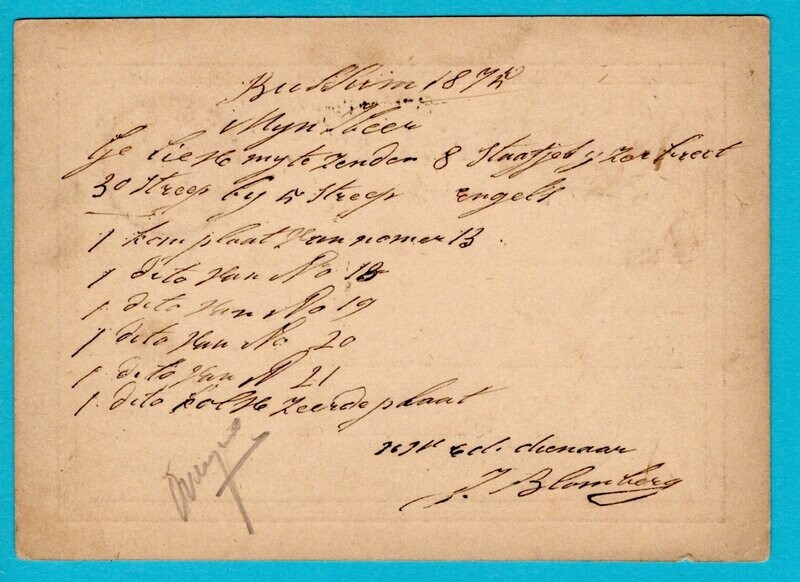 Bussum 1875
Myn Heer
Ge Liefte my te zenden 8 Staafjes yzer breet
30 streep by 5 streep Engels
1 kom plaat Van nomer 13
1 dito Van No 18
1 dito Van No 19
1 dito Van No 20
1 dito Van N 21
1 dito plaat
Ed. dienaar
J Blomberg